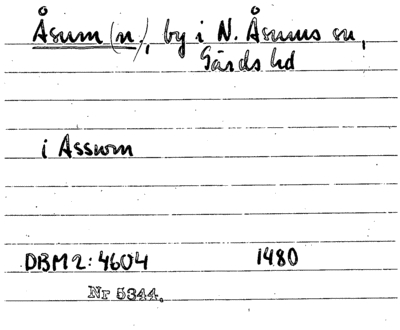 Åsum (n.), by i N. Åsums sn,
Gärds hd
i Asswm
DBM2: 4604 1480
Nr 5344.